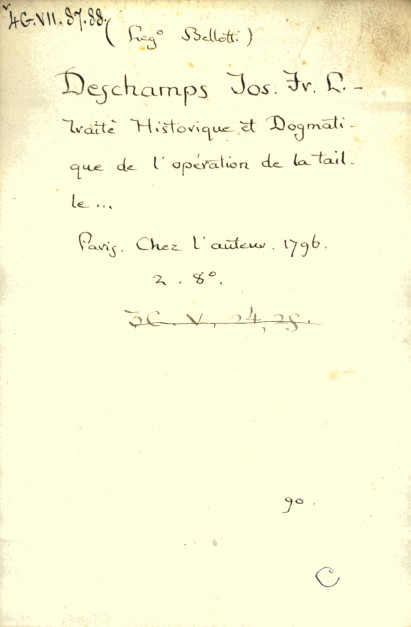 4G.VII.87.88.
(Leg° Bellotti)
Deschamps Jos. Fr. L. -
Traitè Historique et Dogmati-
que de l'opération de la tail-
le...
Paris. Chez l'auteur. 1796.
2. 8°.
3C. V. 24, 25.
90.
C